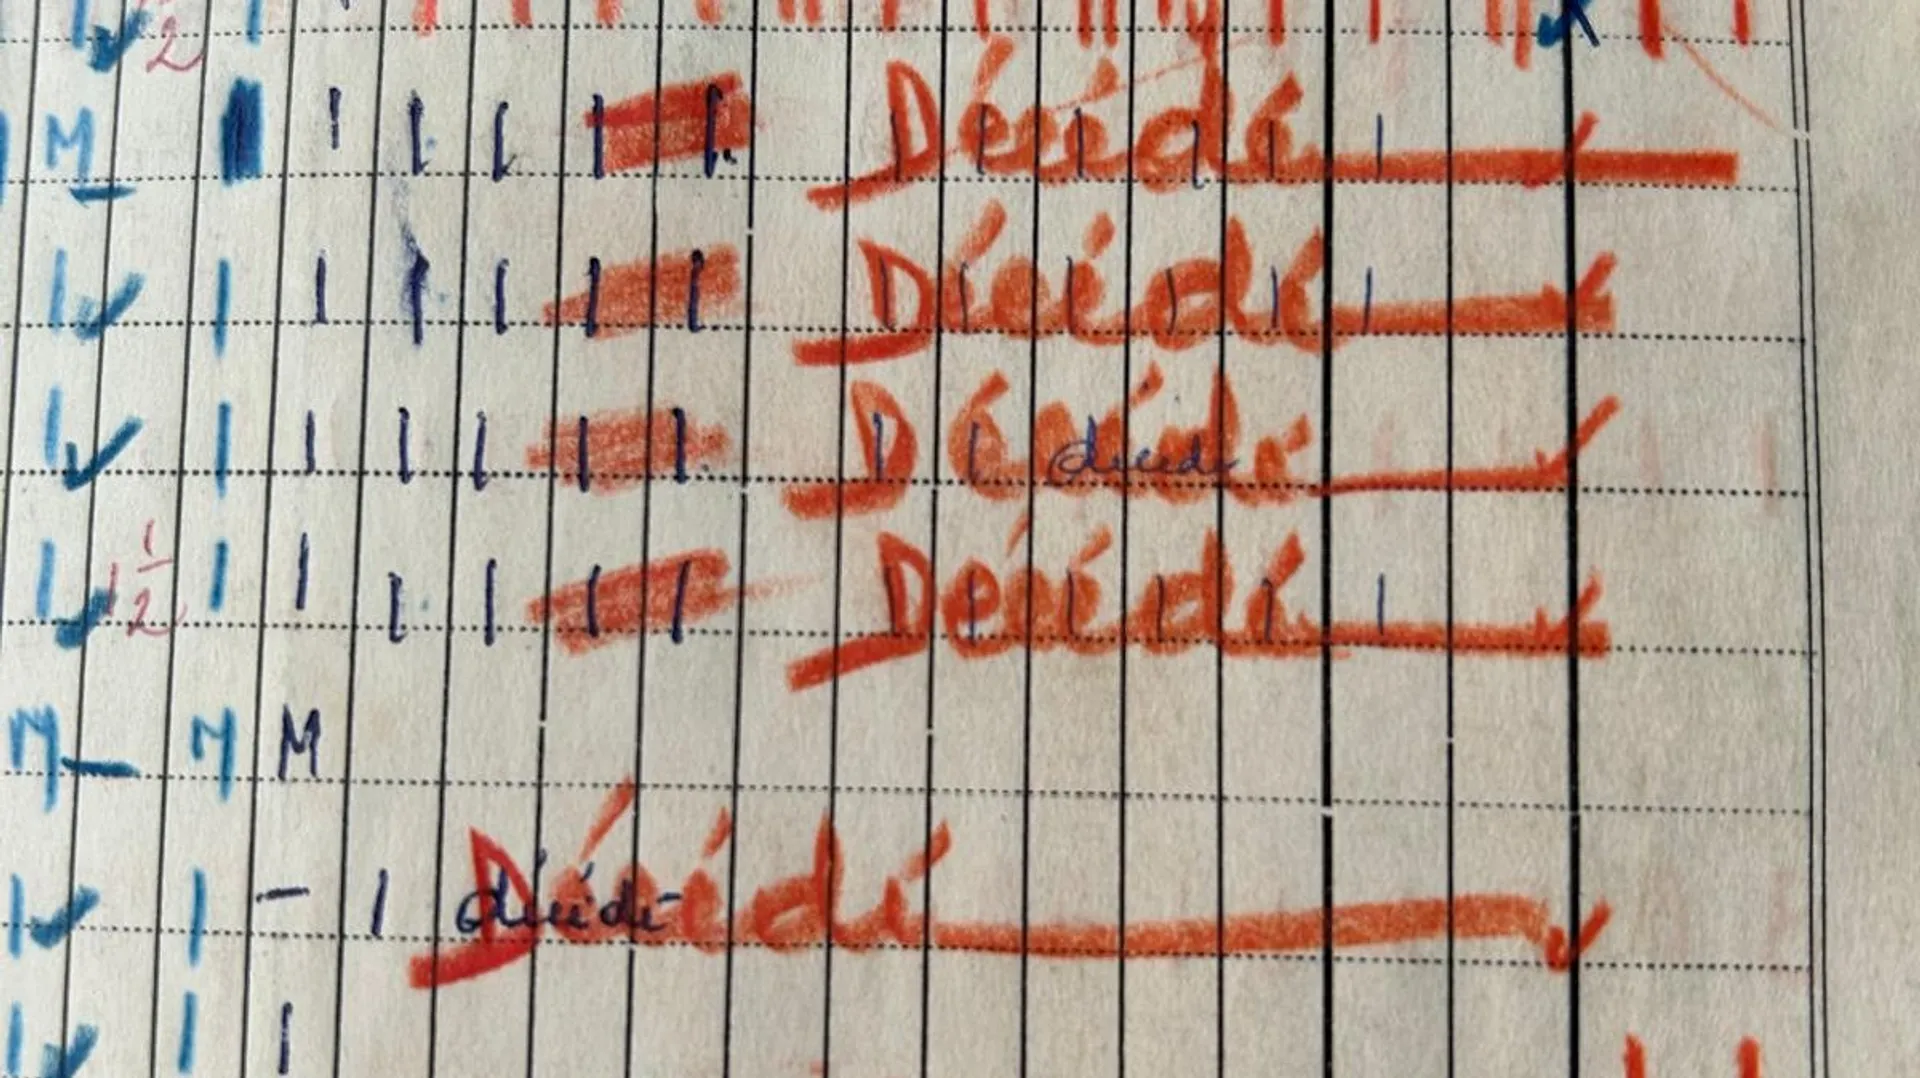 1/2
M Décédé
Décédé
Décédé décédé
1/2 Décédé
M M M
décédé Décédé